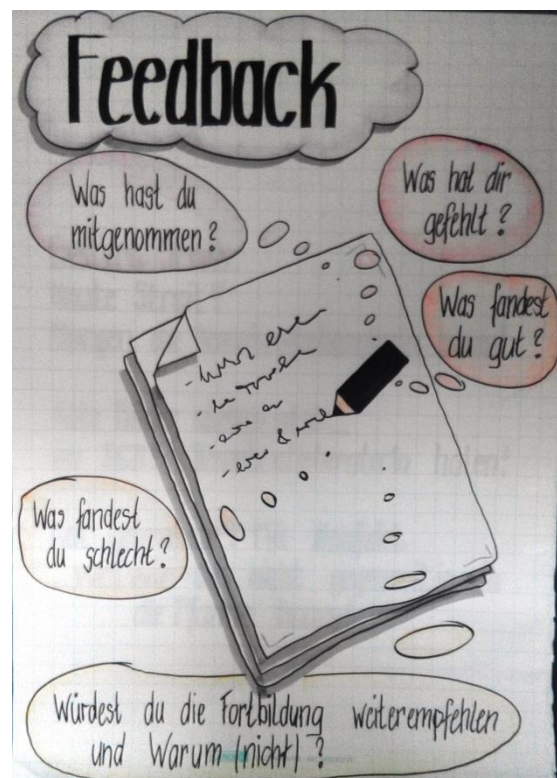 Feedback
Was hast du
mitgenommen?
Was hat dir
gefehlt?
Was fandest
du gut?
Was fandest
du schlecht?
Würdest du die Fortbildung weiterempfehlen
und Warum (nicht)?